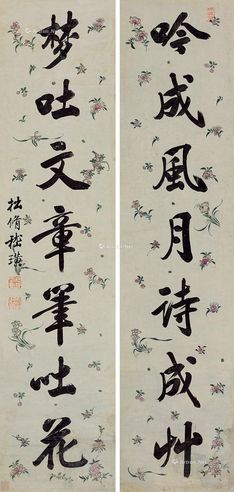 吟成風月诗成艸
梦吐文章筆吐花
拙脩嵇璜